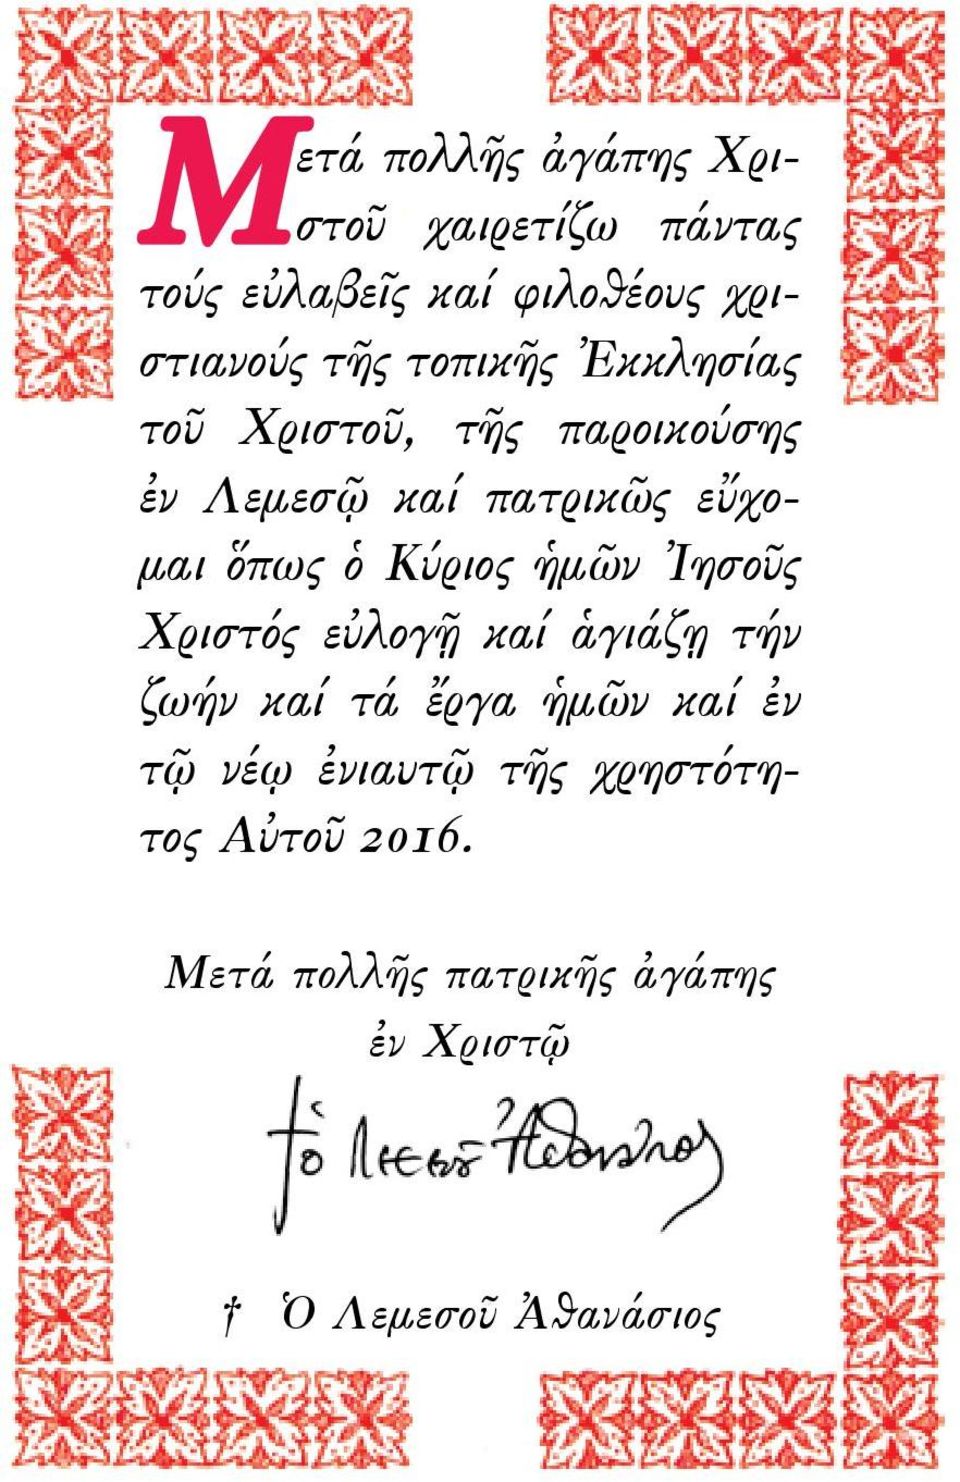 Μετά πολλῆς ἀγάπης Χρι-
στοῦ χαιρετίζω πάντας
τούς εὐλαβεῖς καί φιλοθέους χρι-
στιανούς τῆς τοπικῆς Ἐκκλησίας
τοῦ Χριστοῦ, τῆς παροικούσης
ἐν Λεμεσῷ καί πατρικῶς εὔχο-
μαι ὅπως ὁ Κύριος ἡμῶν Ἰησοῦς
Χριστός εὐλογῇ καί ἁγιάζῃ τήν
ζωήν καί τά ἔργα ἡμῶν καί ἐν
τῷ νέῳ ἐνιαυτῷ τῆς χρηστότη-
τος Αὐτοῦ 2016.
Μετά πολλῆς πατρικῆς ἀγάπης
ἐν Χριστῷ
† ὁ Λεμεσοῦ Ἀθανάσιος
† Ὁ Λεμεσοῦ Ἀθανάσιος